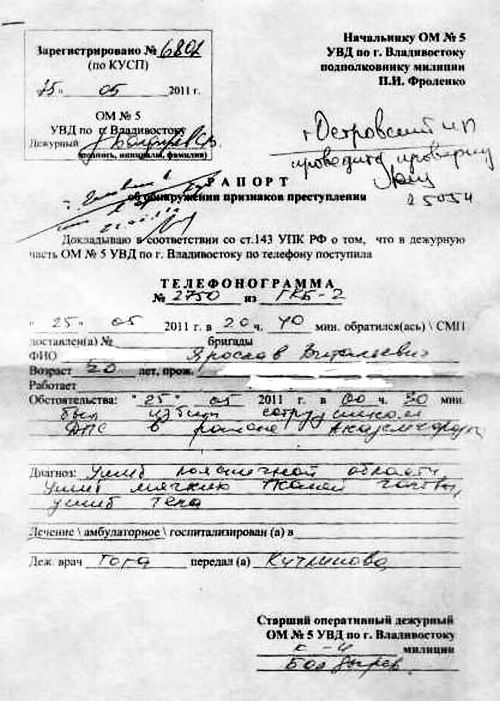 Зарегистрировано № 6802
(по КУСП)
"25" 05 2011 г.
ОМ № 5
УВД по г. Владивостоку
Дежурный Болдырев
(подпись, инициалы, фамилия)
Начальнику ОМ № 5
УВД по г. Владивостоку
подполковнику милиции
П.И. Фроленко
г. Островский
проводите проверку
Р А П О Р Т
об обнаружении признаков преступления
Докладываю в соответствии со ст.143 УПК РФ о том, что в дежурную
часть ОМ № 5 УВД по г. Владивостоку по телефону поступила
Т Е Л Е Ф О Н О Г Р А М М А
№ 2750 из ГКБ-2
"25" 05 2011 г. в 20 ч. 40 мин. обратился(ась) \ СМП
доставлен(а) № бригады
ФИО Ярослав Витальевич
Возраст 20 лет, прож.
Работает
Обстоятельства: "25" 05 2011 г. в 00 ч. 30 мин.
был избит сотрудником
ДПС в районе Академгородка
Диагноз: Ушиб поясничной области
ушиб мягких тканей головы,
ушиб тела
Лечение \ амбулаторное \ госпитализирован (а) в
Деж. врач Тога передал (а) Кутлинова
Старший оперативный дежурный
ОМ № 5 УВД по г. Владивостоку
к-н милиции
Болдырев